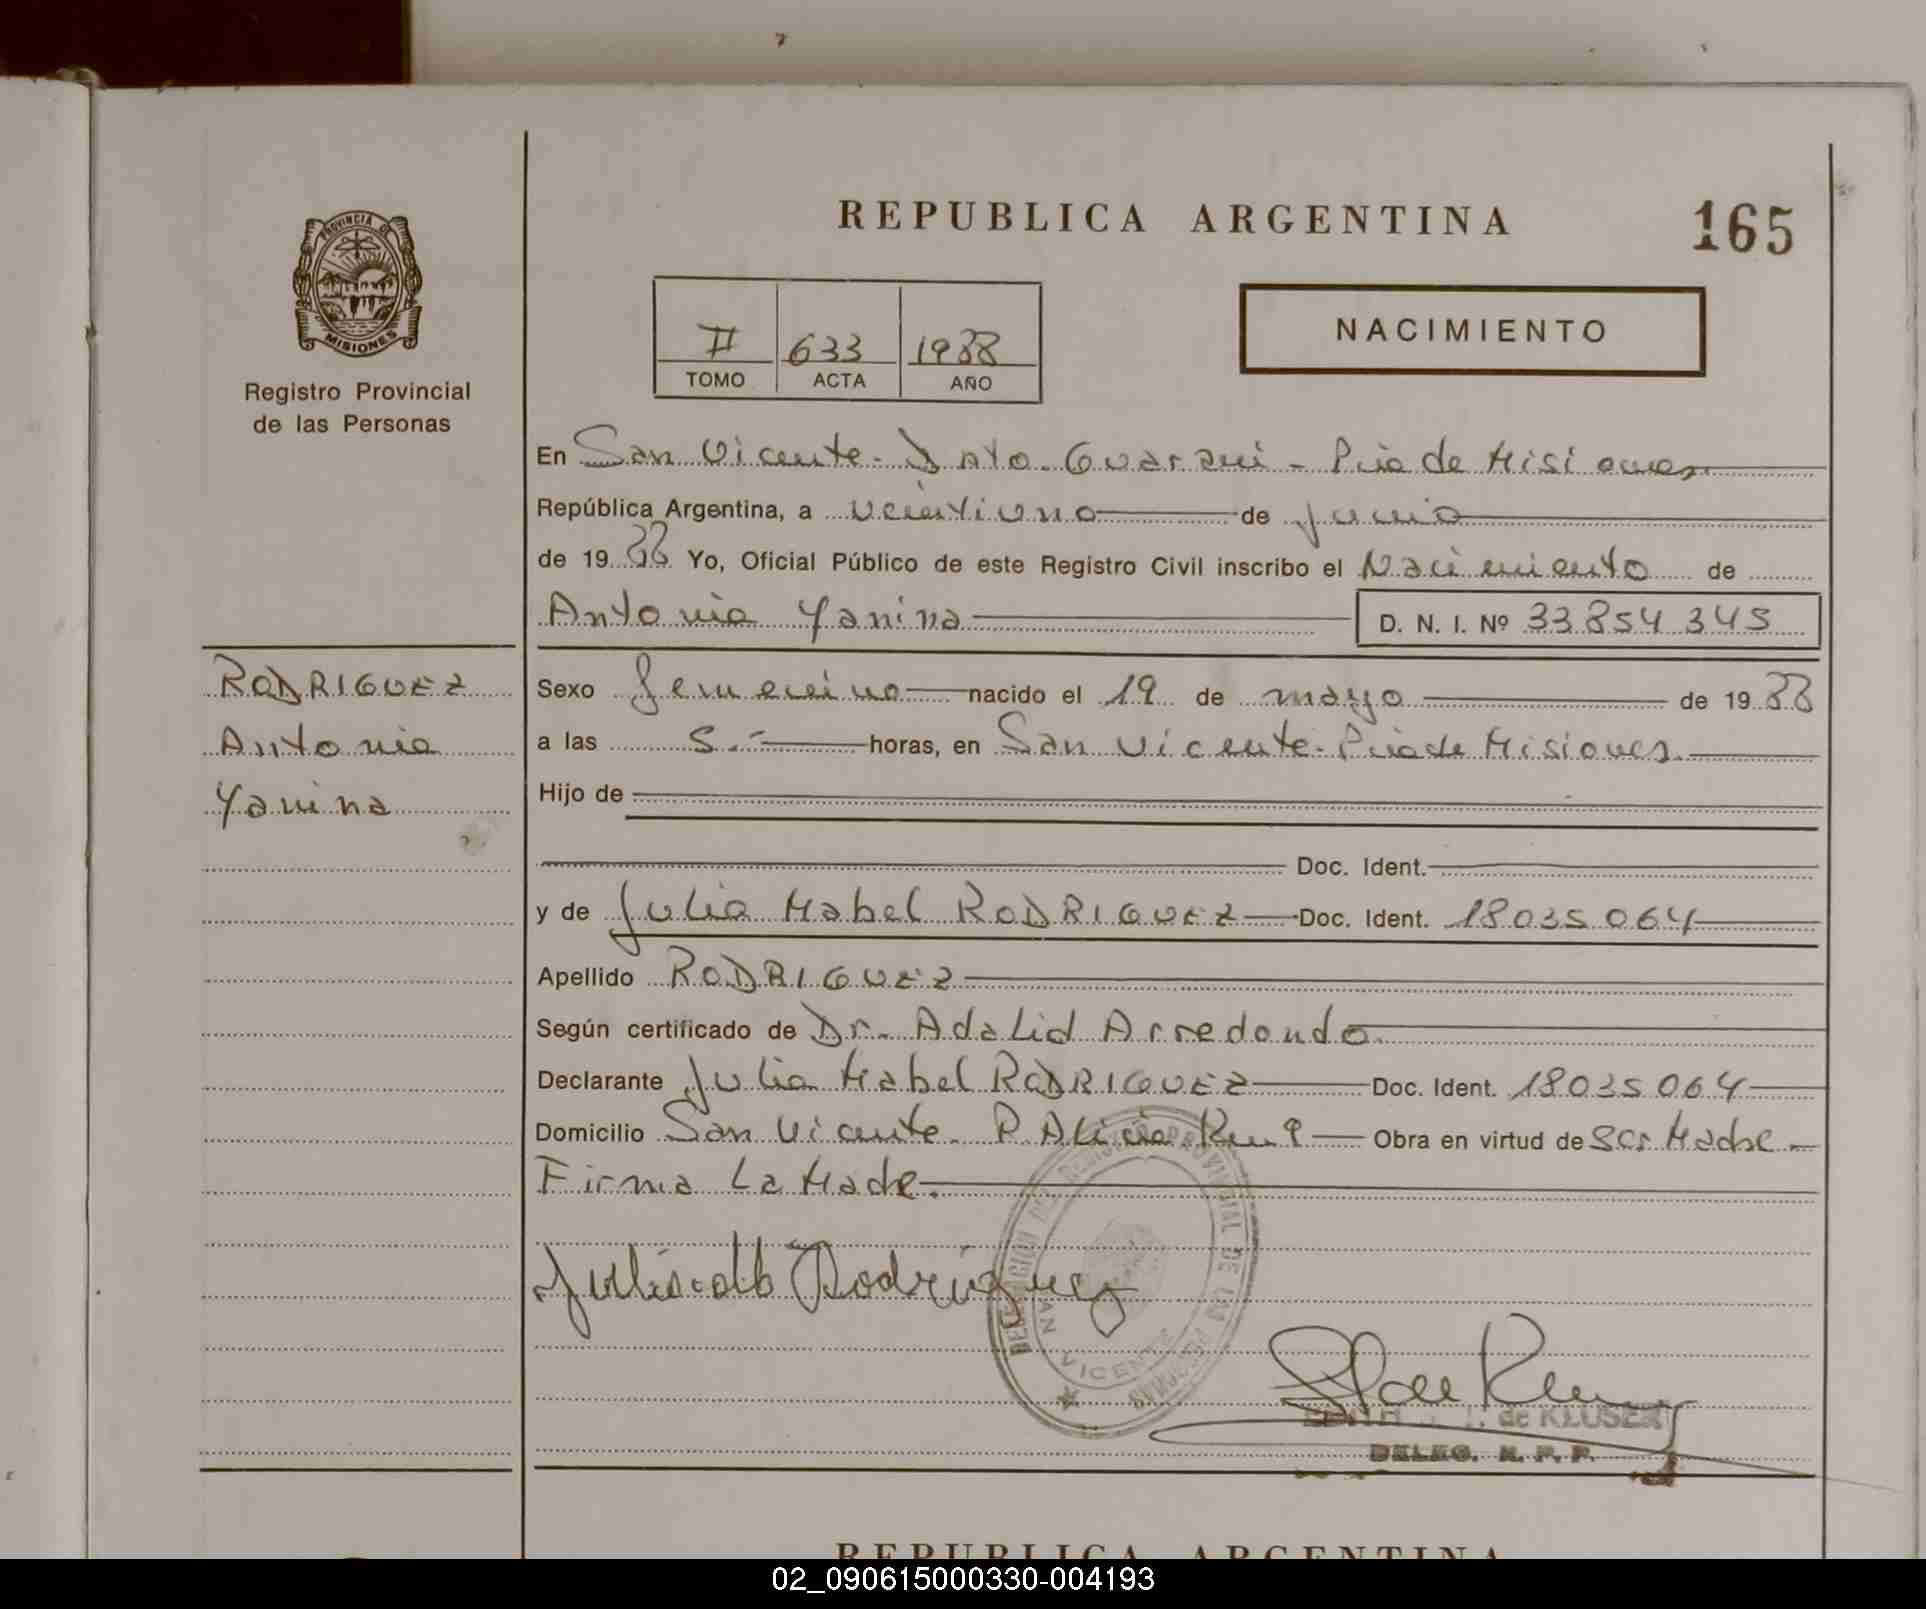 REPUBLICA ARGENTINA
165
PROVINCIA DE
MISIONES
Registro Provincial
de las Personas
II 633 1988
TOMO ACTA AÑO
NACIMIENTO
En San Vicente - Dpto. Guaraní - Pcia de Misiones
República Argentina, a veintiuno de junio
de 1988 Yo, Oficial Público de este Registro Civil inscribo el Nacimiento de
Antonia Yanina D. N. I. Nº 33.854.345
RODRIGUEZ
Antonia
Yanina
Sexo femenino nacido el 19 de mayo de 1988
a las 5.- horas, en San Vicente - Pcia de Misiones.
Hijo de
Doc. Ident.
y de Julia Mabel RODRIGUEZ Doc. Ident. 18.035.064
Apellido RODRIGUEZ
Según certificado de Dr. Adalid Arredondo.
Declarante Julia Mabel RODRIGUEZ Doc. Ident. 18.035.064
Domicilio San Vicente. Obra en virtud de ser Madre -
Firma La Madre.
Rodriguez
DELEGACION DEL REGISTRO PROVINCIAL DE LAS PERSONAS
SAN VICENTE
de KLUSER
DELEG. R. P. P.
REPUBLICA ARGENTINA
02_090615000330-004193